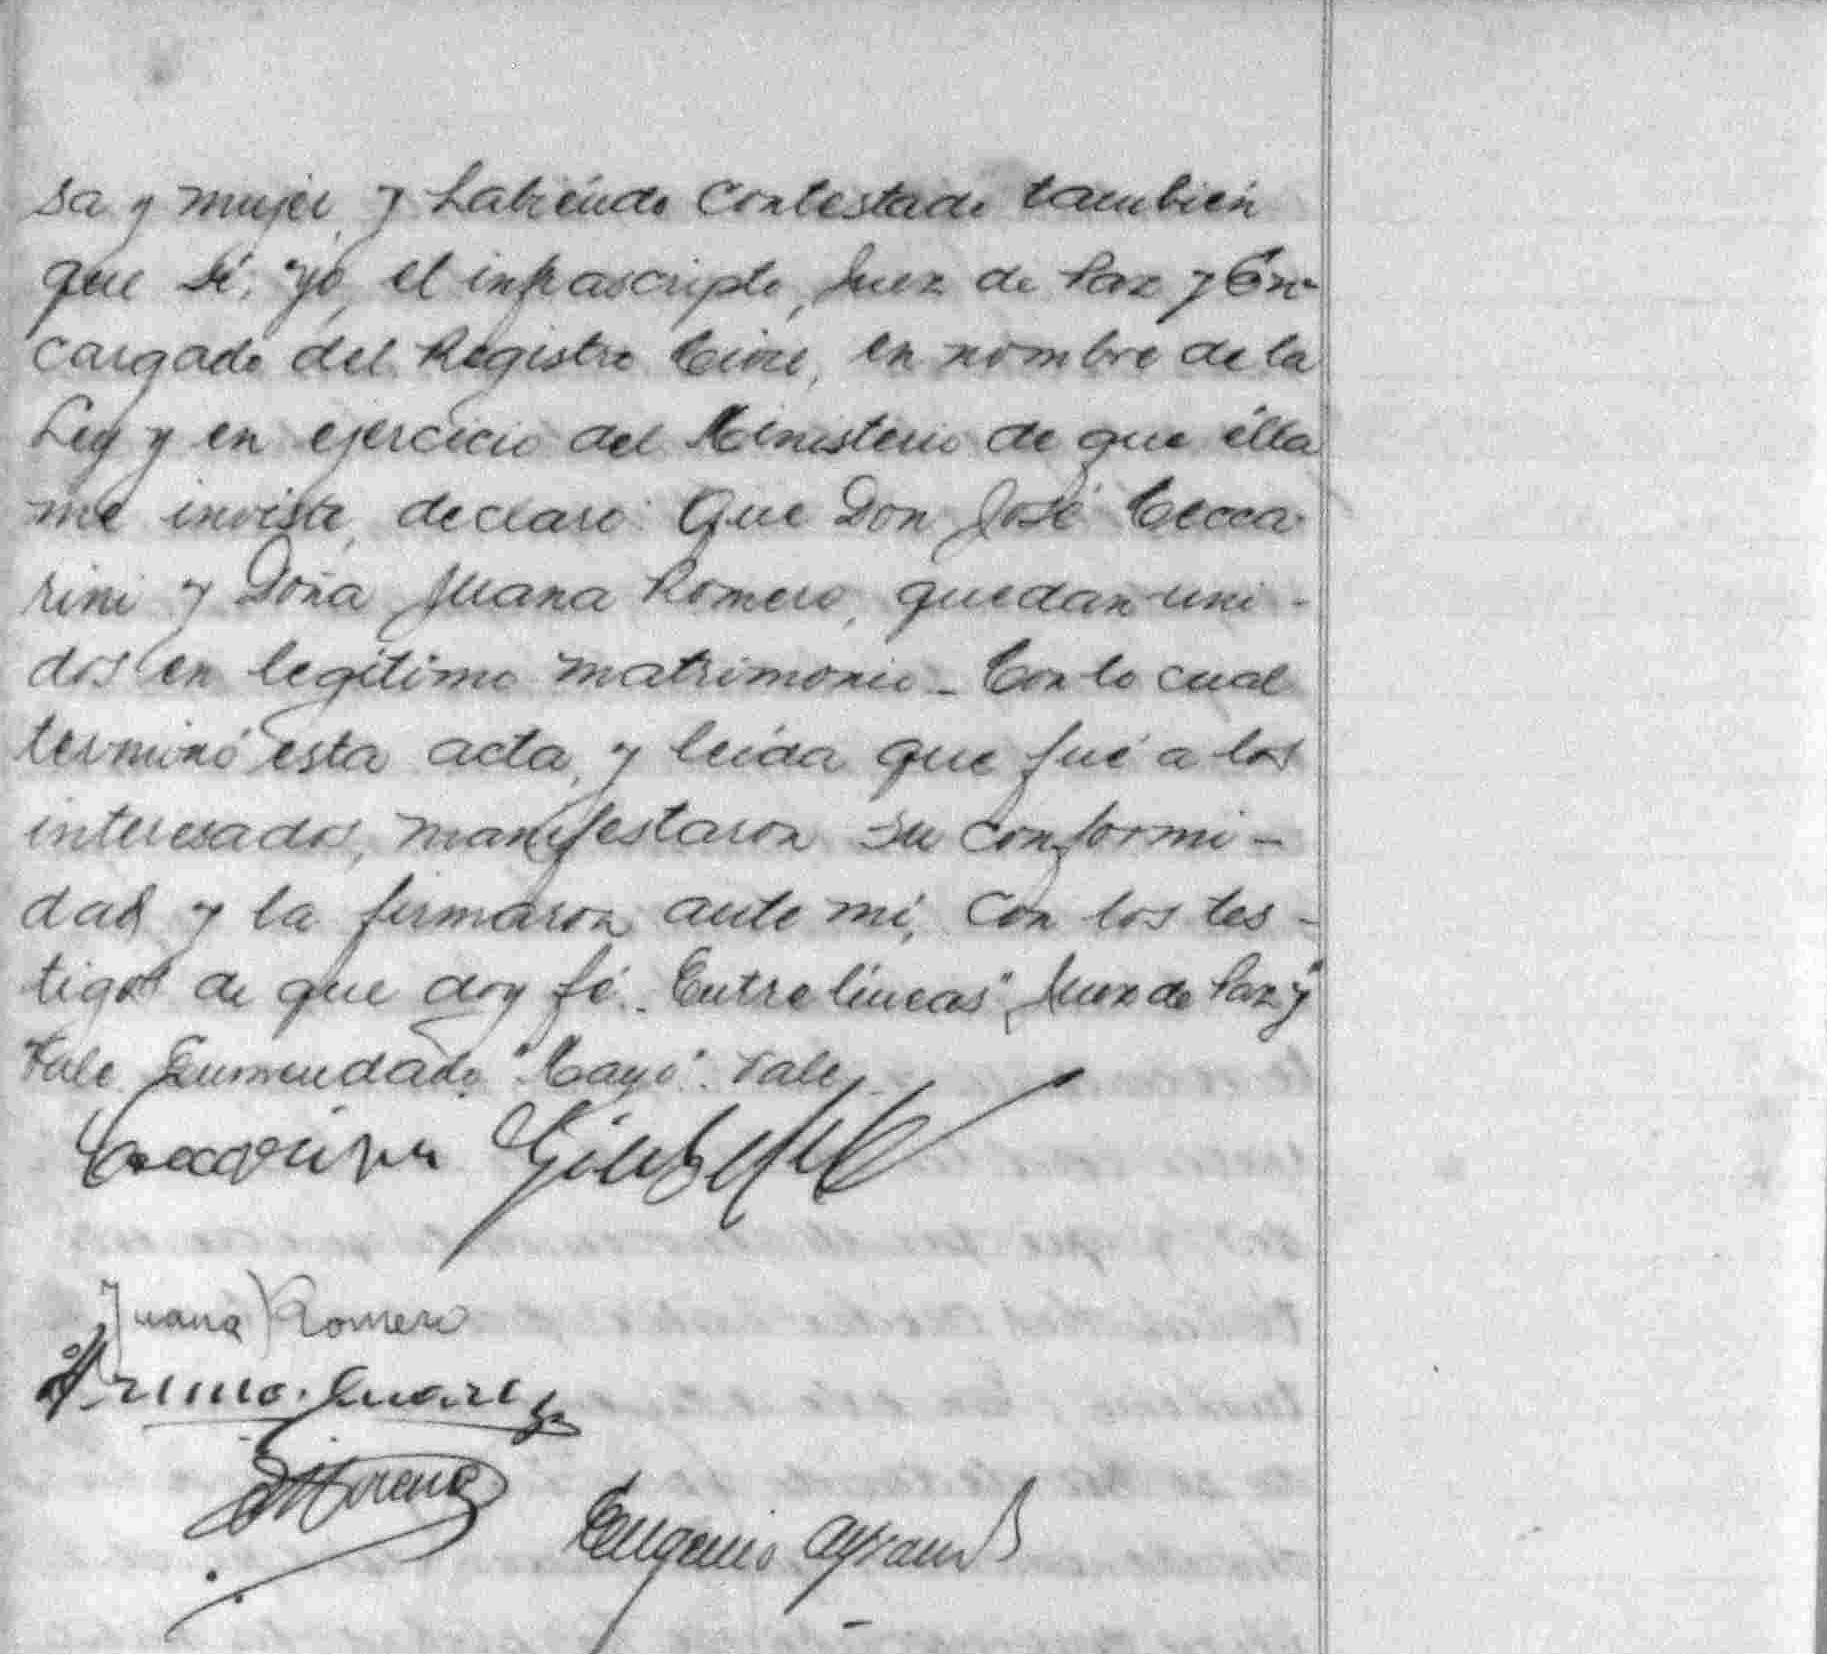 sa y mujer, y habiéndo contestado también
que sí, yo, el infrascripto, Juez de Paz y En-
cargado del Registro Civil, en nombre de la
Ley y en ejercicio del Ministerio de que élla
me inviste, declaro: Que Don José Cecca-
rini y Doña Juana Romero, quedan uni-
dos en legítimo matrimonio - Con lo cual
terminó esta acta, y leída que fué a los
interesados, manifestaron su conformi-
dad y la firmaron ante mí, con los tes-
tigos de que doy fé. Entre líneas "Juez de Paz y"
Vale Enmendado "Cayó". Vale
Ceccarini Giuseppe
Juana Romero
Suarez
Moreno
Eugenio